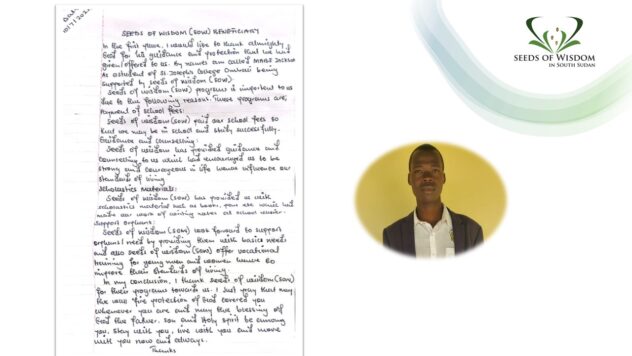 10/7/202
SEEDS OF WISDOM (SOW) BENEFICIARY
In the first place, I would like to thank almighty
God for his guidance and protection that he had
given/offered to us. By names am called
As a student of St. Joseph's College Ombaci being
supported by seeds of wisdom (SOW).
Seeds of wisdom (SOW) programs is important to us
due to the following reasons. These programs are;
Payment of school fees:
Seeds of wisdom (SOW) paid our school fees so
that we may be in school and study successfully.
Guidance and counselling:
Seeds of wisdom has provided guidance and
counselling to us which had encouraged us to be
strong and courageous in life hence influence our
standards of living
Scholastics Materials:
Seeds of wisdom (SOW) has provided us with
scholastics material such as books, pens etc which had
made our work of writing notes at school easier.
Support orphans:
Seeds of wisdom (SOW) look forward to support
orphans/need by providing them with basics needs
and also seeds of wisdom (SOW) offer vocational
training for young men and women hence to
improve their standards of living.
In my conclusion, I thank seeds of wisdom (SOW)
for their programs towards us. I Just pray that may
the fire protection of God covered you
whenever you are and may the blessing of
God the father, son and Holy spirit be among
you, stay with you, live with you and move
with you now and always.
Thanks
SEEDS OF WISDOM
IN SOUTH SUDAN